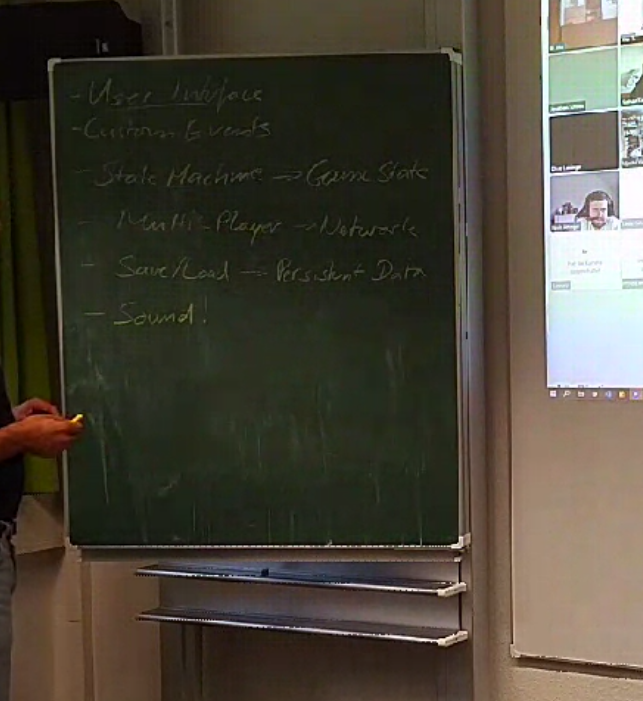 - User Interface
- Custom Events
- State Machine → Game State
- Multi-Player → Network
- Save/Load → Persistent Data
- Sound!